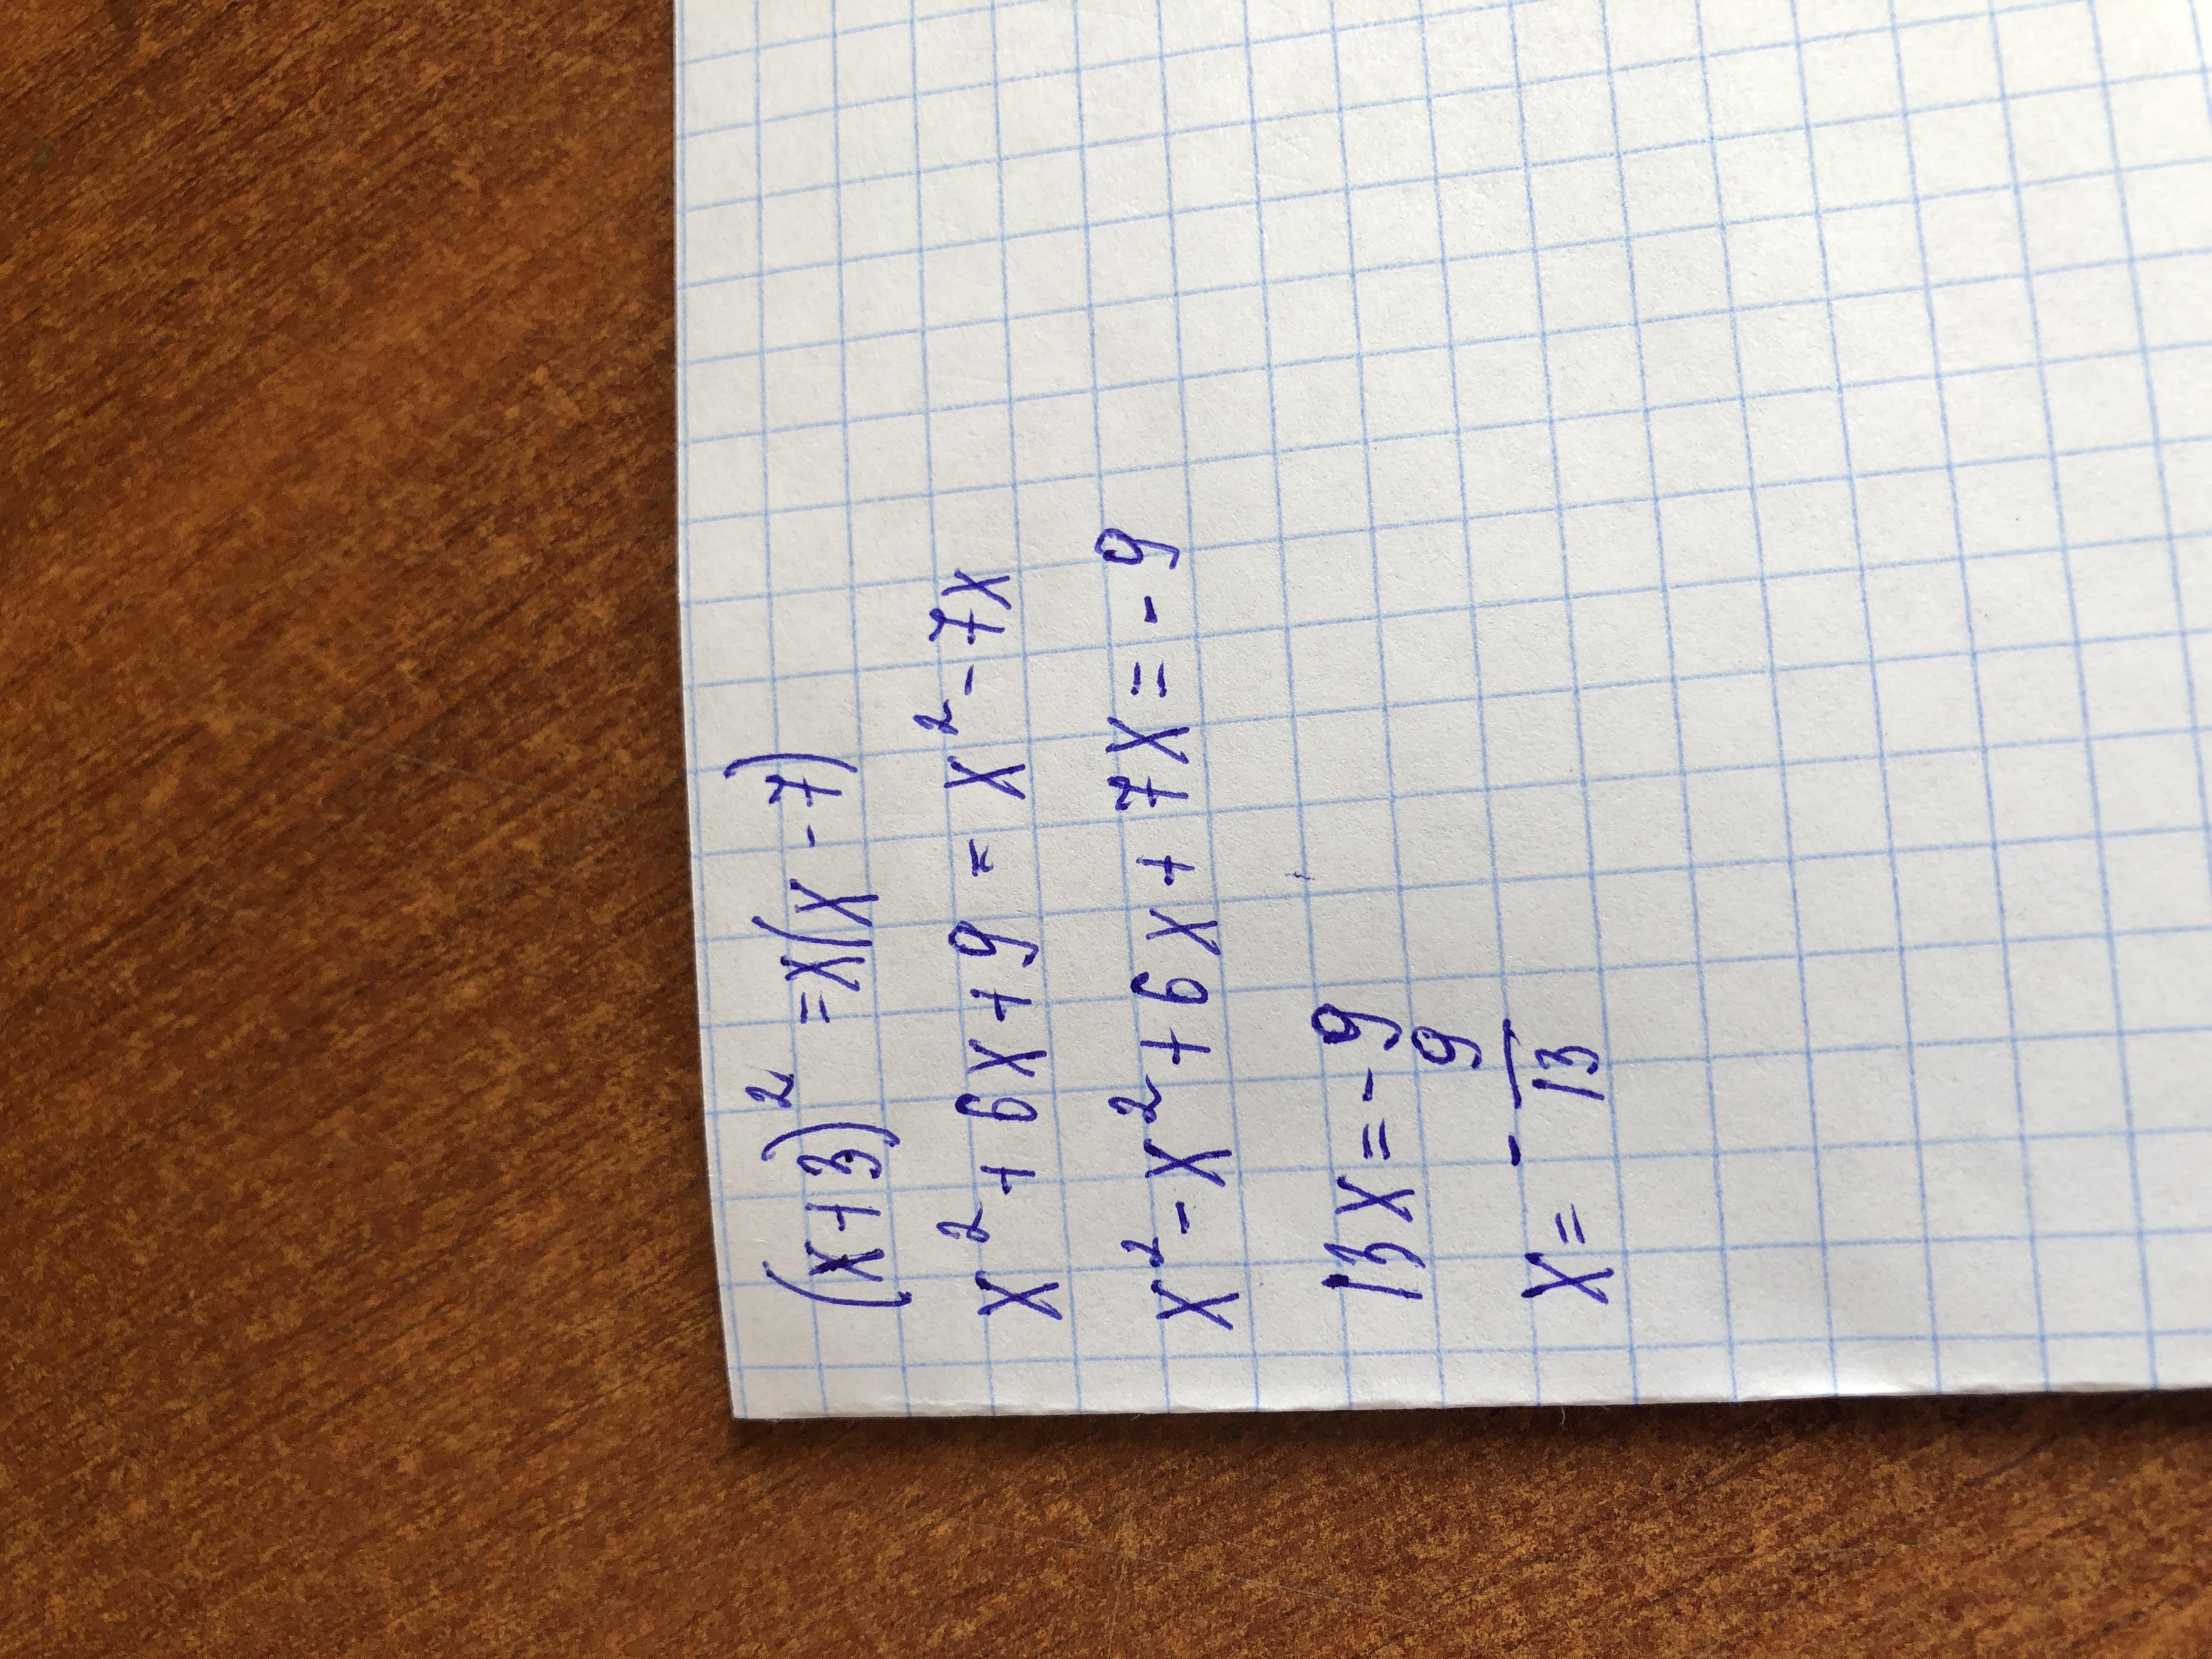 (x+3)² = x(x - 7)
x² + 6x + 9 = x² - 7x
x² - x² + 6x + 7x = - 9
13x = - 9
x = - 9/13